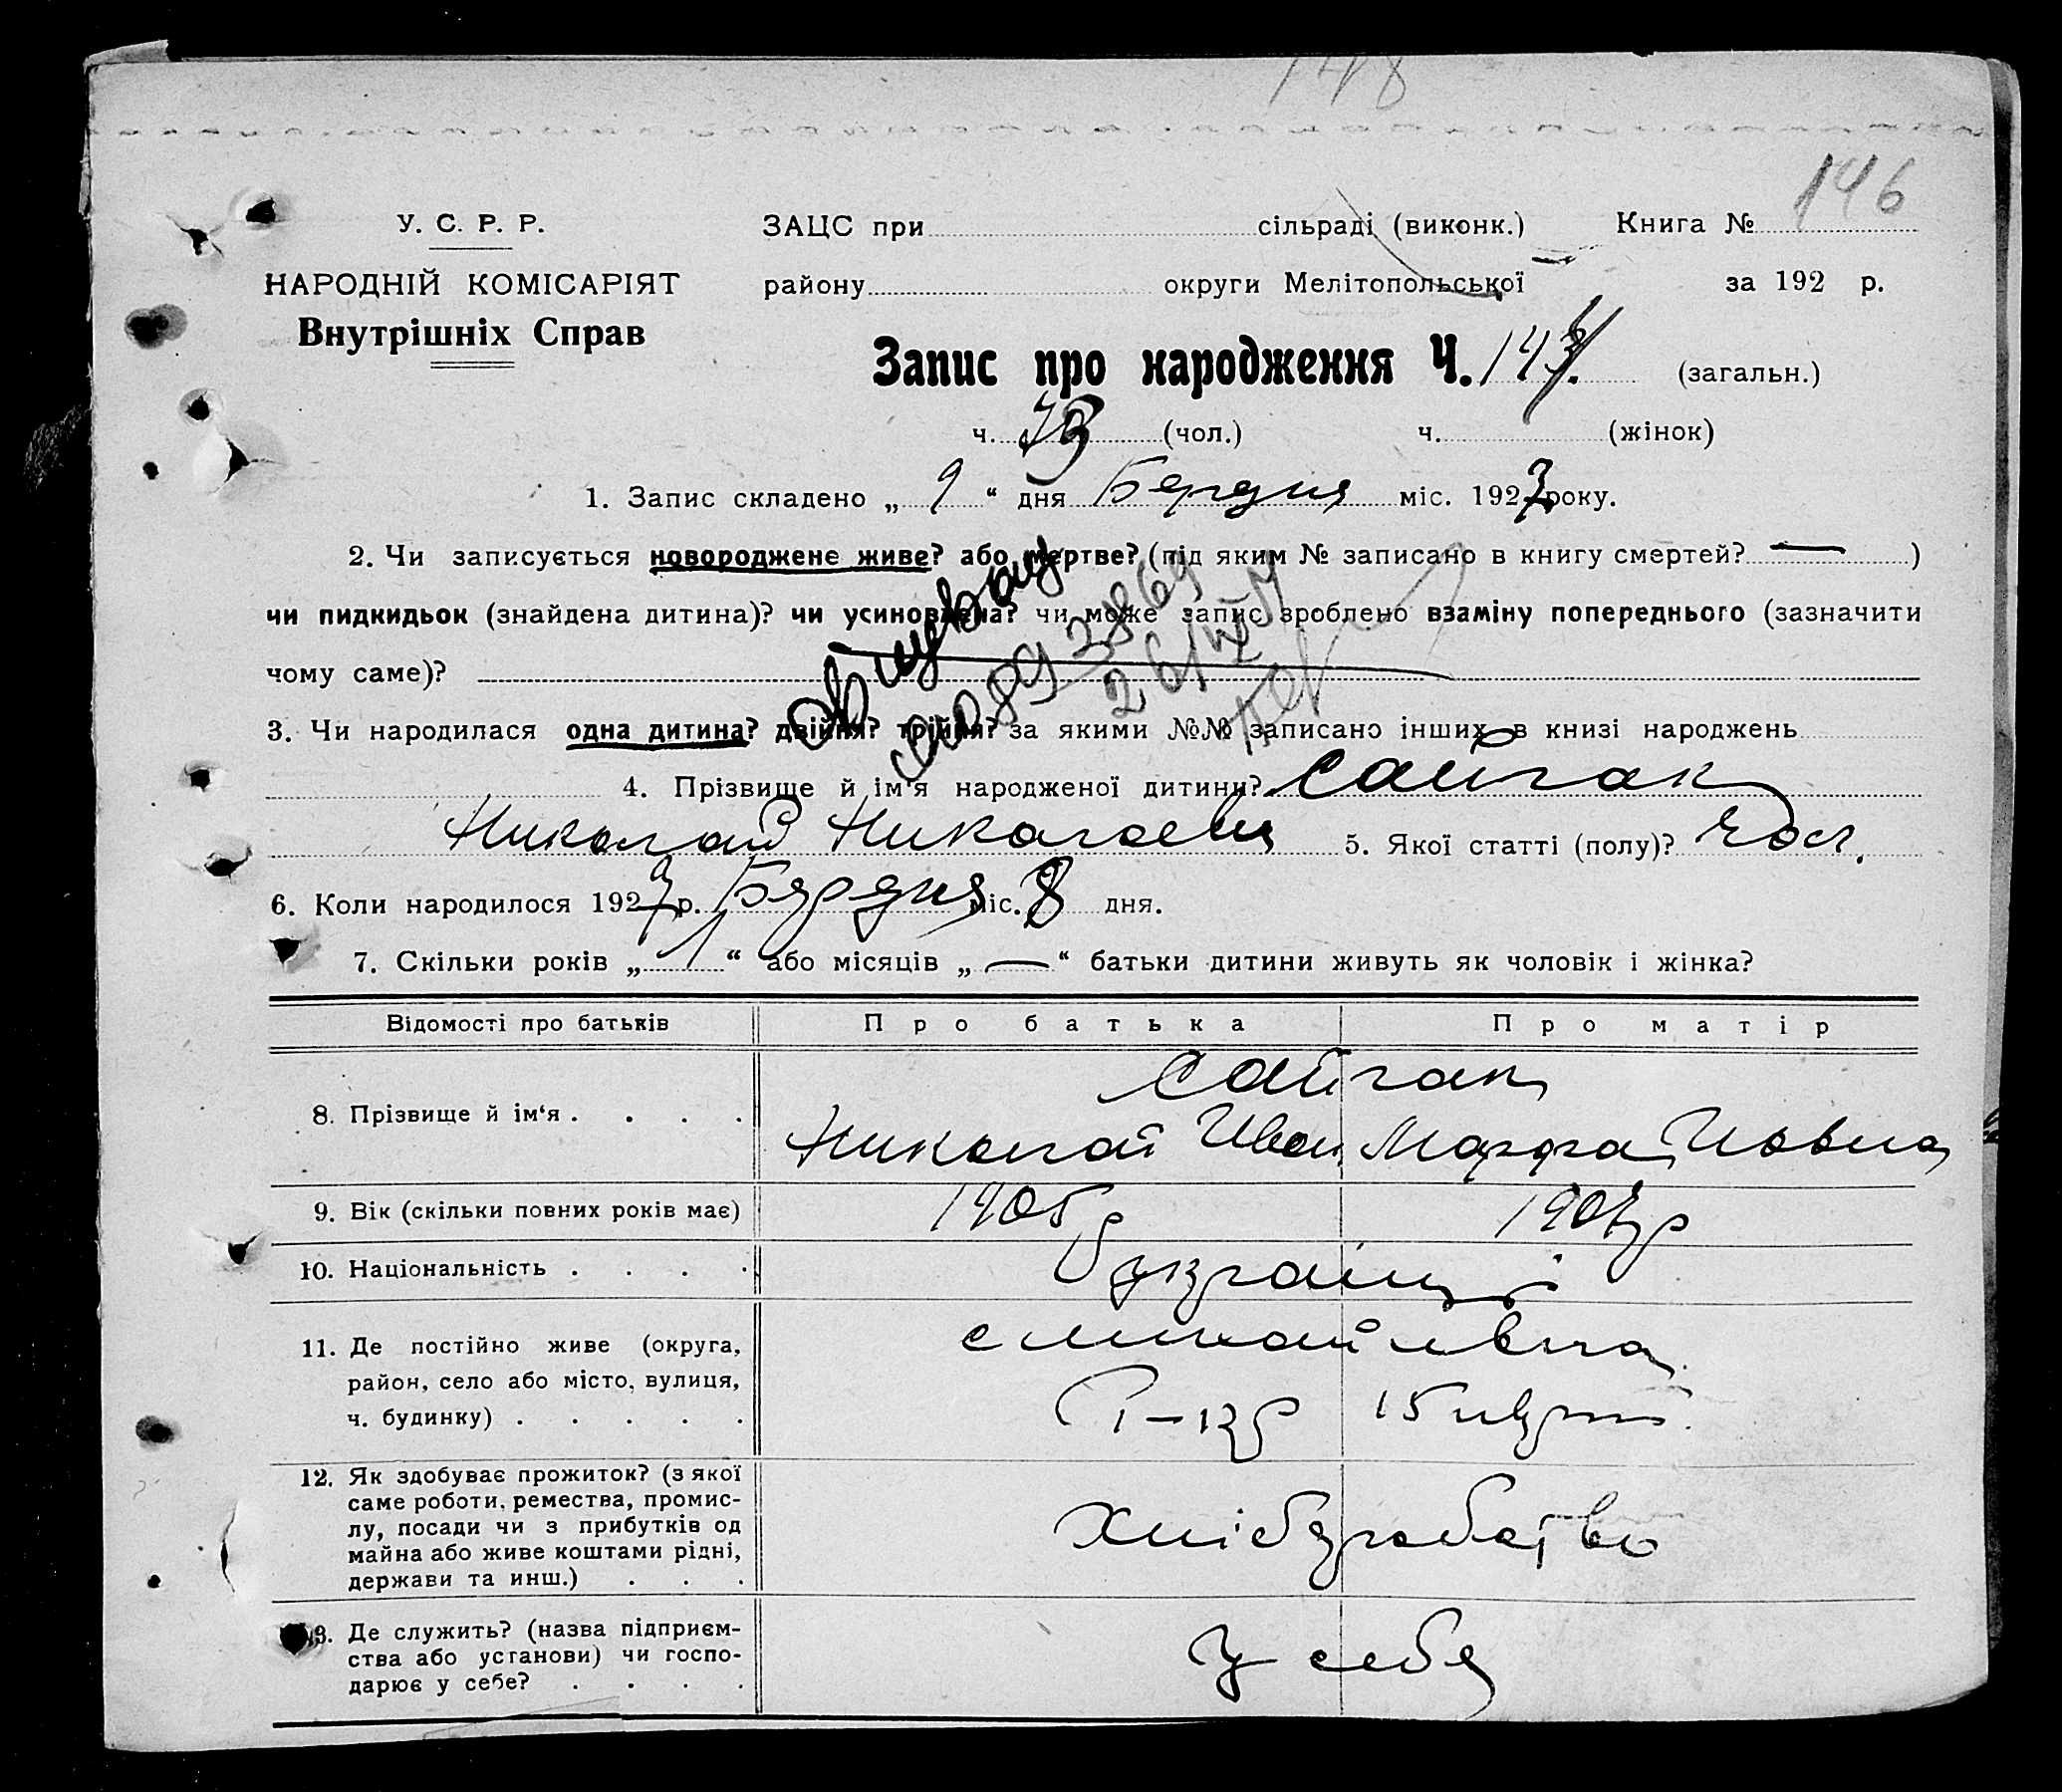 148
146
У. С. Р. Р.
ЗАЦС при сільраді (виконк.) Книга №
НАРОДНІЙ КОМІСАРІЯТ
району округи Мелітопольської за 192 р.
Внутрішніх Справ
Запис про народження Ч. (загальн.)
ч. (чол.) ч. (жінок)
1. Запис складено „ 9 “ дня міс. 1927 року.
2. Чи записується новороджене живе? або мертве? (під яким № записано в книгу смертей? — )
чи пидкидьок (знайдена дитина)? чи усиновлена? чи може запис зроблено взаміну попереднього (зазначити
чому саме)?
3. Чи народилася одна дитина? двійня? трійня? за якими №№ записано інших в книзі народжень
4. Прізвище й ім'я народженої дитини? Сайгак
Николай Николаевич 5. Якої статті (полу)? Чол.
6. Коли народилося 1927 р. міс. 8 дня.
7. Скільки років „ 1 “ або місяців „ — “ батьки дитини живуть як чоловік і жінка?
Відомості про батьків Про батька Про матір
Сайгак
8. Прізвище й ім‘я . . . .
Николай Иван Марфа
9. Вік (скільки повних років має) 1905 р 1907 р
10. Національність . . . . Українці
11. Де постійно живе (округа,
район, село або місто, вулиця,
ч. будинку) . . . . .
с Михайлівка
12. Як здобуває прожиток? (з якої
саме роботи, ремества, промис-
лу, посади чи з прибутків од
майна або живе коштами рідні,
держави та инш.) . . .
Хлібуробство
13. Де служить? (назва підприєм-
ства або установи) чи госпо-
дарює у себе? . . . .
У себя